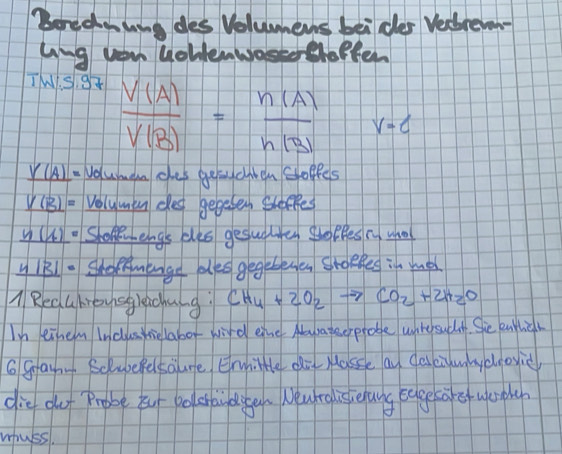 Berechnung des Volumens bei der Verbrenn-
ung von Kohlenwasserstoffen
TW:S.97 V(A) / V(B) = n(A) / n(B) V=l
V(A) = Volumen des gesuchten Stoffes
V(B) = Volumen des gegeben Stoffes
n(A) = Stoffmengs des gesuchten Stoffes in mol
n(B) = Stoffmenge des gegebenen Stoffes in mol
1 Reaktionsgleichung: CH₄ + 2O₂ → CO₂ + 2H₂O
In einem Industrielabor wird eine Abwasserprobe untersucht. Sie enthält
6 Gramm Schwefelsäure. Ermittle die Masse an Calciumhydroxid
die der Probe zur vollständigen Neutralisierung zugesetzt werden
muss.